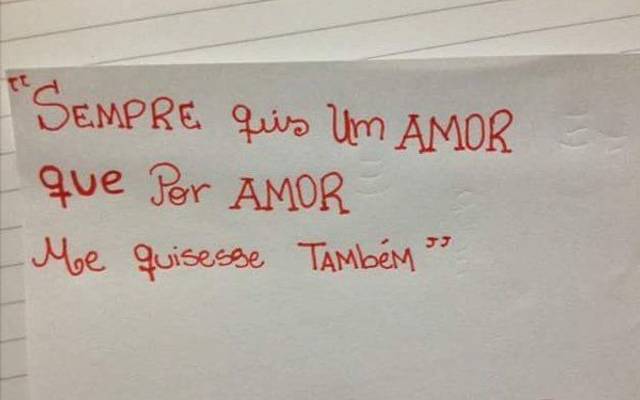 "SEMPRE quis um AMOR
que Por AMOR
Me quisesse TAMbéM"